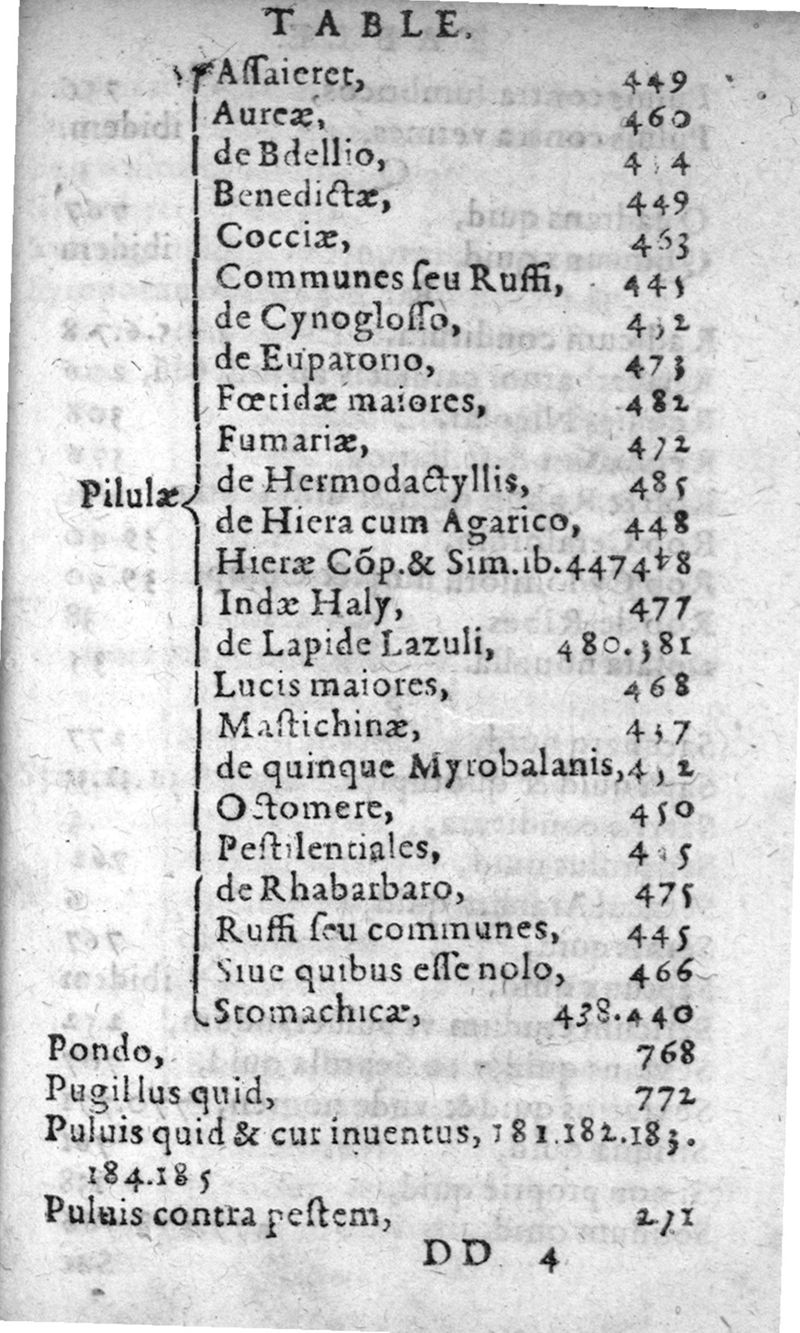 TABLE.
Aſſaieret, 449
Aureæ, 460
de Bdellio,
Benedictæ, 449
Cocciæ, 463
Communes ſeu Ruffi, 445
de Cynogloſſo,
de Eupatorio, 473
Fœtidæ maiores, 482
Fumariæ, 472
Pilulæ de Hermodactyllis, 485
de Hiera cum Agarico, 448
Hieræ Cõp.& Sim.ib.447448
Indæ Haly, 477
de Lapide Lazuli, 480.381
Lucis maiores, 468
Maſtichinæ, 437
de quinque Myrobalanis,
Octomere, 450
Peſtilentiales,
de Rhabarbaro, 475
Ruffi ſeu communes, 445
Siue quibus eſſe nolo, 466
Stomachicæ, 438.440
Pondo, 768
Pugillus quid, 772
Puluis quid & cur inuentus, 181.182.183.
184.185
Puluis contra peſtem, 271
DD 4